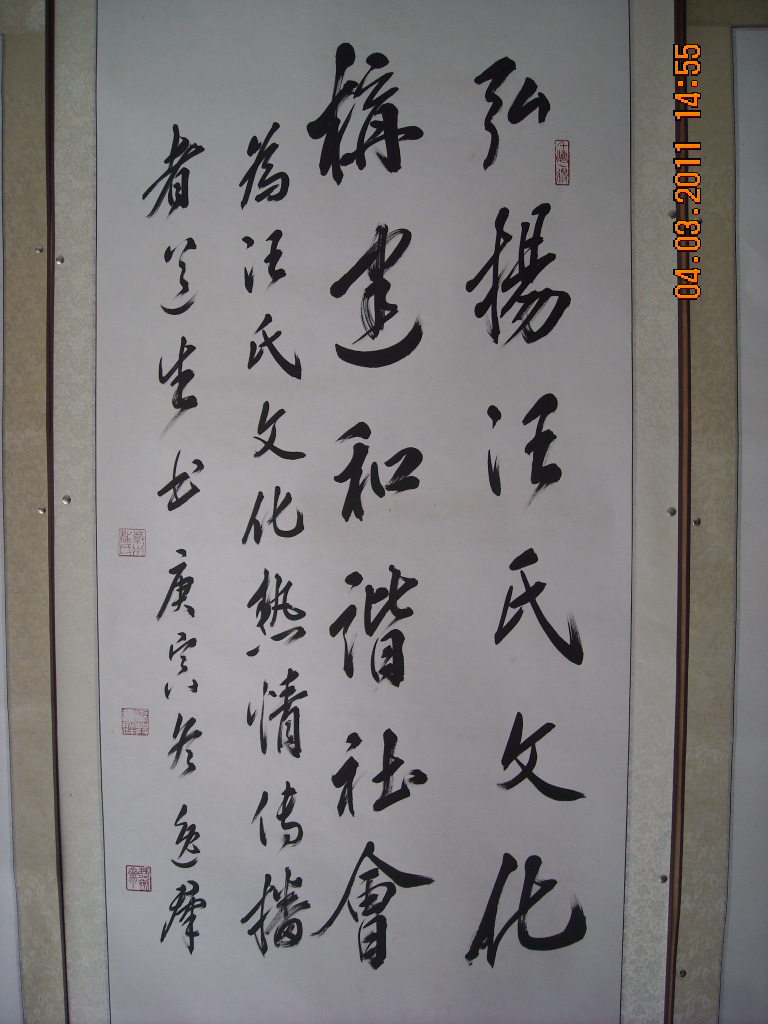 弘揚汪氏文化
構建和谐社會
為汪氏文化熱情传播
者道生书庚寅冬逸群
04.03.2011 14:55